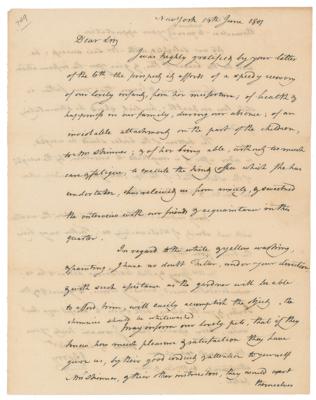 709
New York 14th June 1801
Dear Sir,
I was highly gratified by your letter
of the 6th the prospect it affords of a speedy recovery
of our lovely infants, from her misfortune, of health &
happiness in our family, during our absence, of an
inviolable attachment on the part of the children,
for Mrs Skinner, & of her being able, without too much
care & fatigue, to execute the kind offices which she has
undertaken, has relieved us from anxiety, & sweetened
the interviews with our friends & acquaintance in this
quarter.
In regard to the white & yellow washing,
& painting, I have no doubt Tular, under your direction
& with such assistance as the gardner will be able
to afford him, will easily accomplish the object, the
chimnies should be whitewashed
May inform our lovely pets, that if they
knew how much pleasure & satisfaction they have
given us, by their good conduct, & attention to yourself
Mrs Skinner, & their other instructors, they would exert
themselves